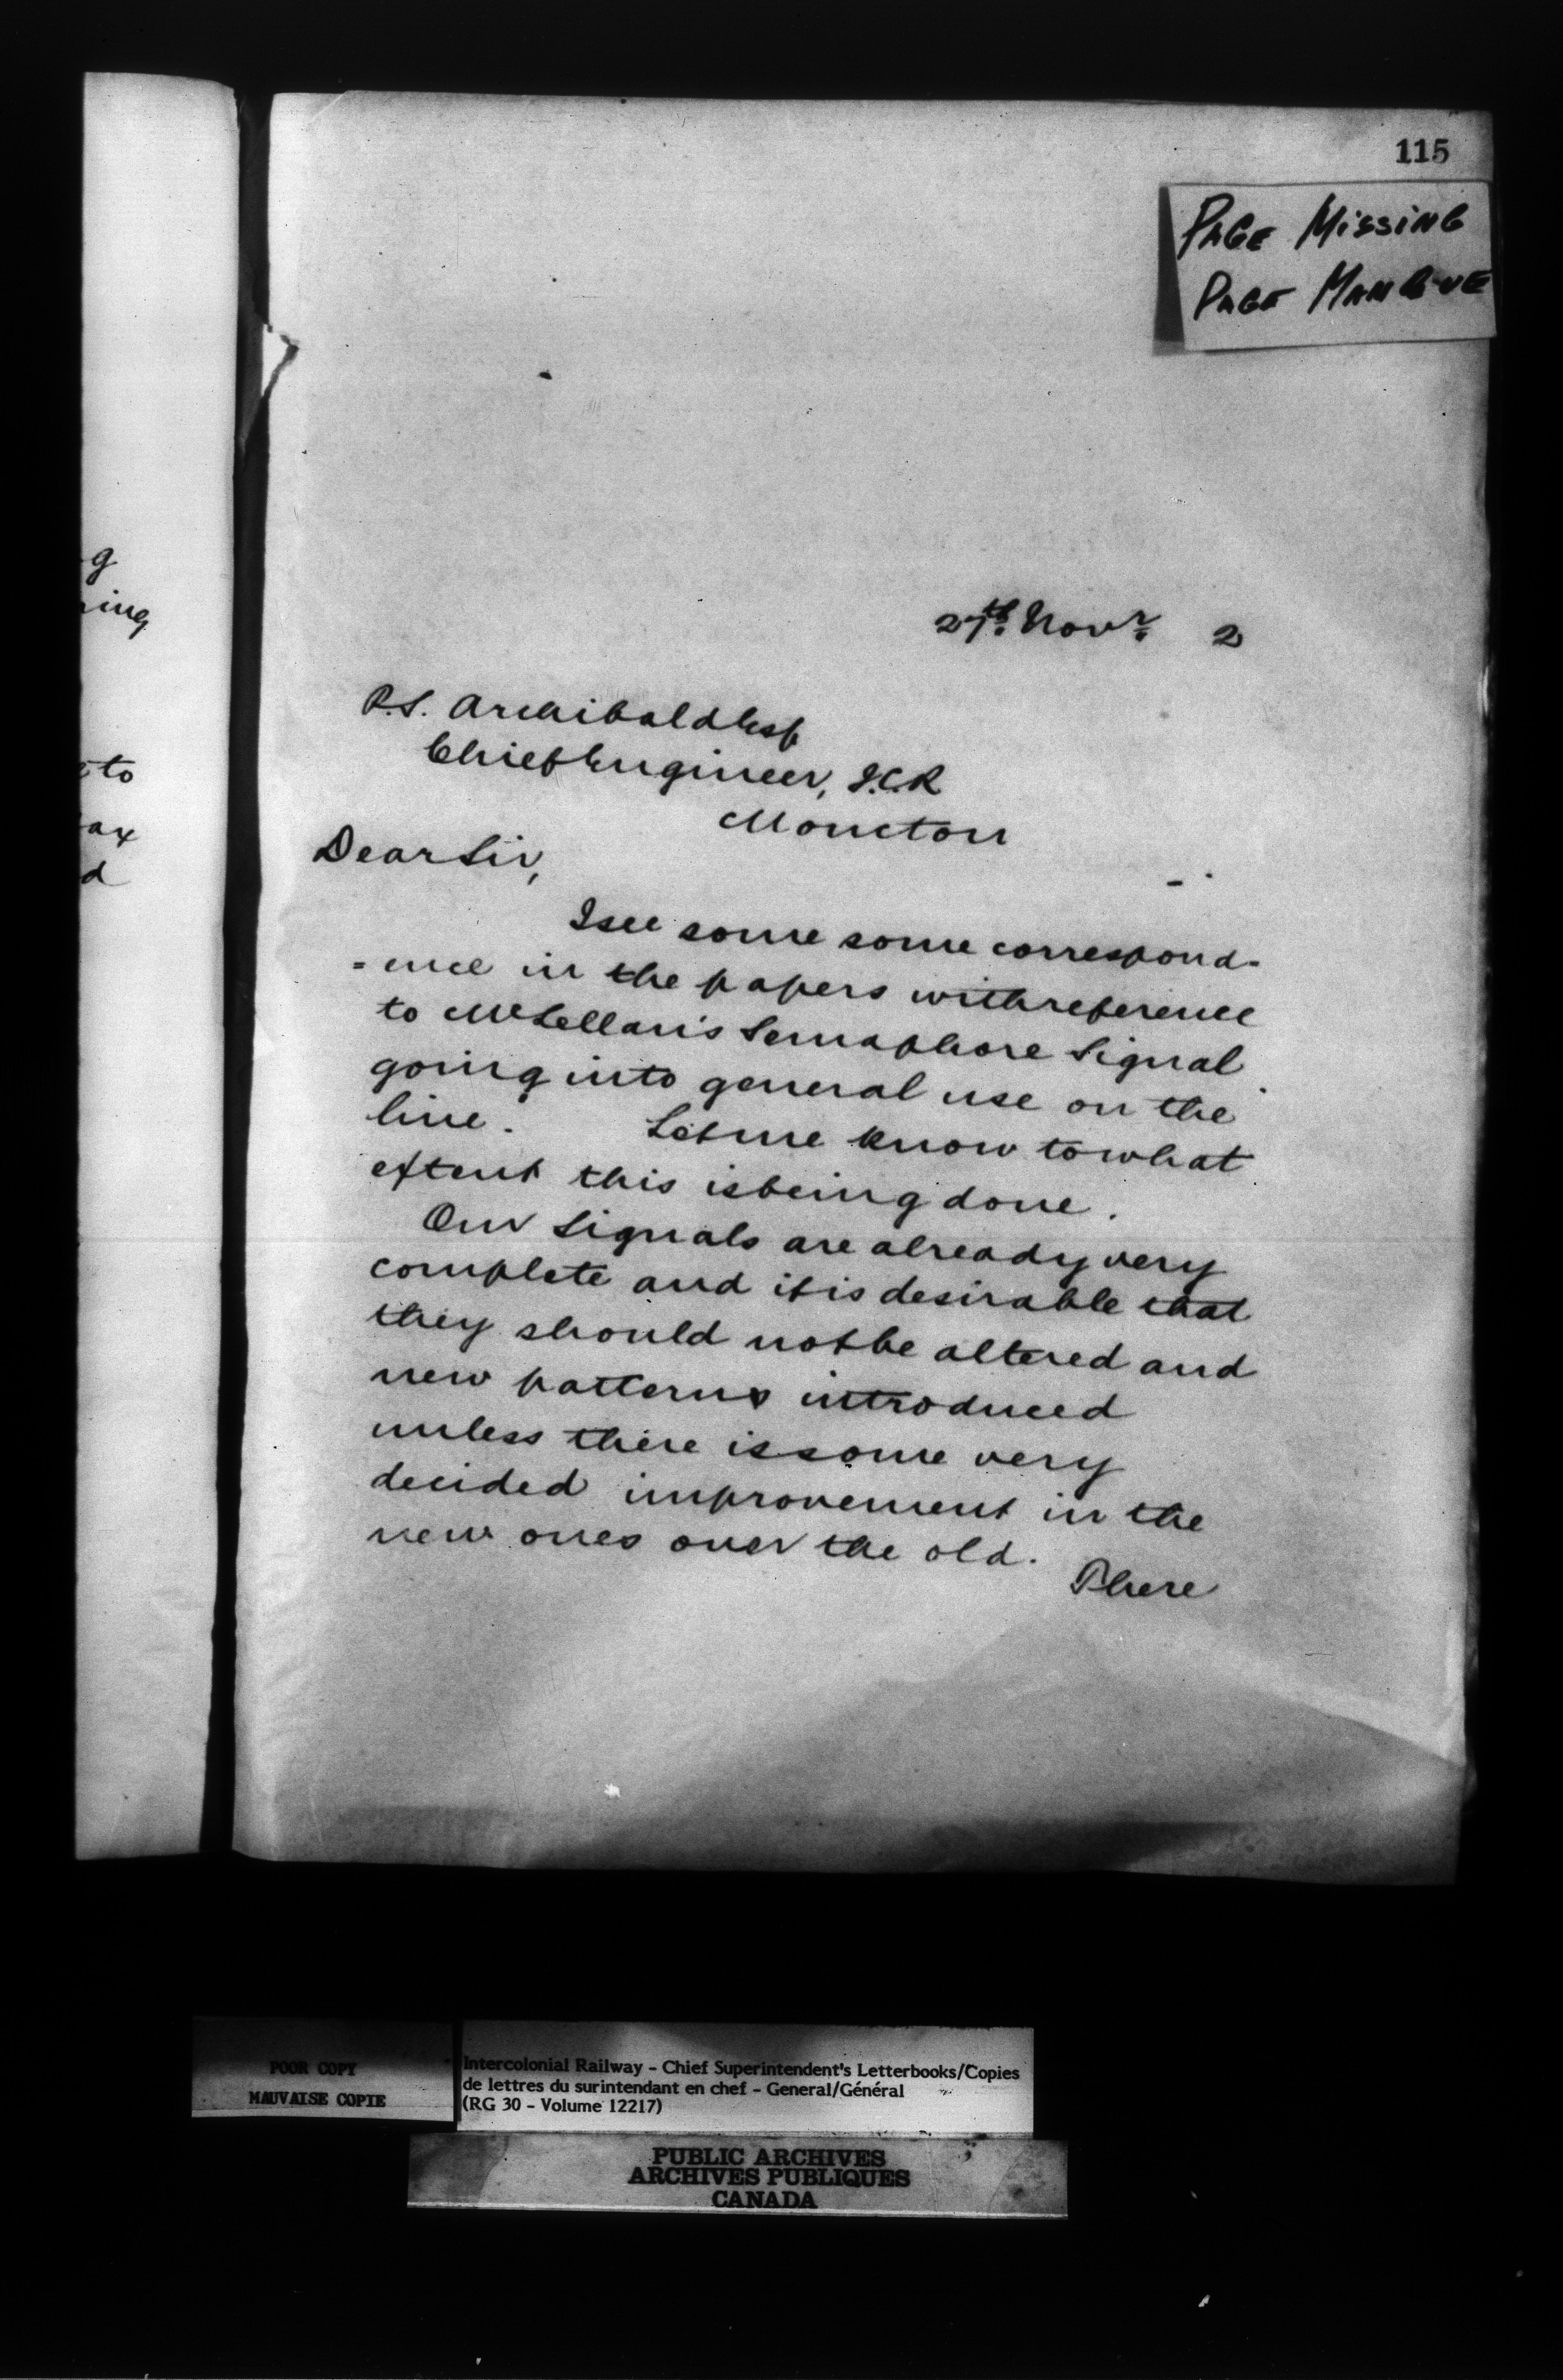 115
PAGE MISSING
PAGE MANQUE
g
ing
to
ax
d
27th Novr 2
P.S. Archibald Esq
Chief Engineer, I.C.R
Moncton
Dear Sir,
I see some some correspond-
=ence in the papers with reference
to McLellan's Semaphore Signal
going into general use on the
line. Let me know to what
extent this is being done.
Our Signals are already very
complete and it is desirable that
they should not be altered and
new patterns introduced
unless there is some very
decided improvement in the
new ones over the old.
There
POOR COPY
MAUVAISE COPIE
Intercolonial Railway - Chief Superintendent's Letterbooks/Copies
de lettres du surintendant en chef - General/Général
(RG 30 - Volume 12217)
PUBLIC ARCHIVES
ARCHIVES PUBLIQUES
CANADA